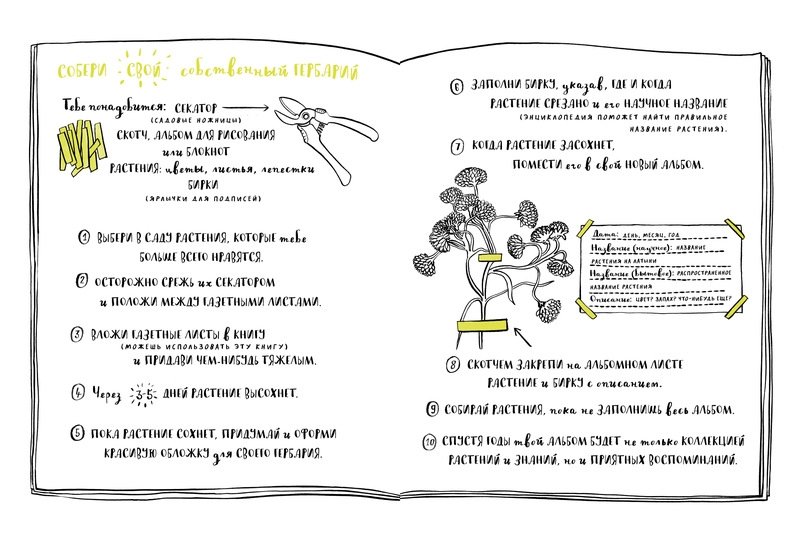 СОБЕРИ СВОЙ собственный ГЕРБАРИЙ
Тебе понадобится: СЕКАТОР
(САДОВЫЕ НОЖНИЦЫ)
СКОТЧ, АЛЬБОМ ДЛЯ РИСОВАНИЯ
или БЛОКНОТ
РАСТЕНИЯ: цветы, листья, лепестки
БИРКИ
(ЯРЛЫЧКИ ДЛЯ ПОДПИСЕЙ)
1 ВЫБЕРИ В САДУ РАСТЕНИЯ, КОТОРЫЕ тебе
БОЛЬШЕ ВСЕГО НРАВЯТСЯ.
2 ОСТОРОЖНО СРЕЖЬ их СЕКАТОРОМ
и ПОЛОЖИ МЕЖДУ ГАЗЕТНЫМИ ЛИСТАМИ.
3 ВЛОЖИ ГАЗЕТНЫЕ ЛИСТЫ в КНИГУ
(МОЖЕШЬ ИСПОЛЬЗОВАТЬ ЭТУ КНИГУ)
и ПРИДАВИ ЧЕМ-НИБУДЬ ТЯЖЕЛЫМ.
4 Через 3-5 ДНЕЙ РАСТЕНИЕ ВЫСОХНЕТ.
5 ПОКА РАСТЕНИЕ СОХНЕТ, ПРИДУМАЙ и ОФОРМИ
КРАСИВУЮ ОБЛОЖКУ для СВОЕГО ГЕРБАРИЯ.
6 ЗАПОЛНИ БИРКУ, указав, ГДЕ И КОГДА
РАСТЕНИЕ СРЕЗАНО и его НАУЧНОЕ НАЗВАНИЕ
(ЭНЦИКЛОПЕДИЯ ПОМОЖЕТ НАЙТИ ПРАВИЛЬНОЕ
НАЗВАНИЕ РАСТЕНИЯ).
7 КОГДА РАСТЕНИЕ ЗАСОХНЕТ,
ПОМЕСТИ его в свой НОВЫЙ АЛЬБОМ.
Дата: ДЕНЬ, МЕСЯЦ, ГОД
Название (научное): НАЗВАНИЕ
РАСТЕНИЯ НА ЛАТЫНИ
Название (бытовое): РАСПРОСТРАНЕННОЕ
НАЗВАНИЕ РАСТЕНИЯ
Описание: ЦВЕТ? ЗАПАХ? ЧТО-НИБУДЬ ЕЩЕ?
8 СКОТЧЕМ ЗАКРЕПИ на АЛЬБОМНОМ ЛИСТЕ
РАСТЕНИЕ и БИРКУ с описанием.
9 СОБИРАЙ РАСТЕНИЯ, пока не ЗАПОЛНИШЬ весь АЛЬБОМ.
10 СПУСТЯ ГОДЫ твой АЛЬБОМ БУДЕТ не только КОЛЛЕКЦИЕЙ
РАСТЕНИЙ и ЗНАНИЙ, но и ПРИЯТНЫХ ВОСПОМИНАНИЙ.